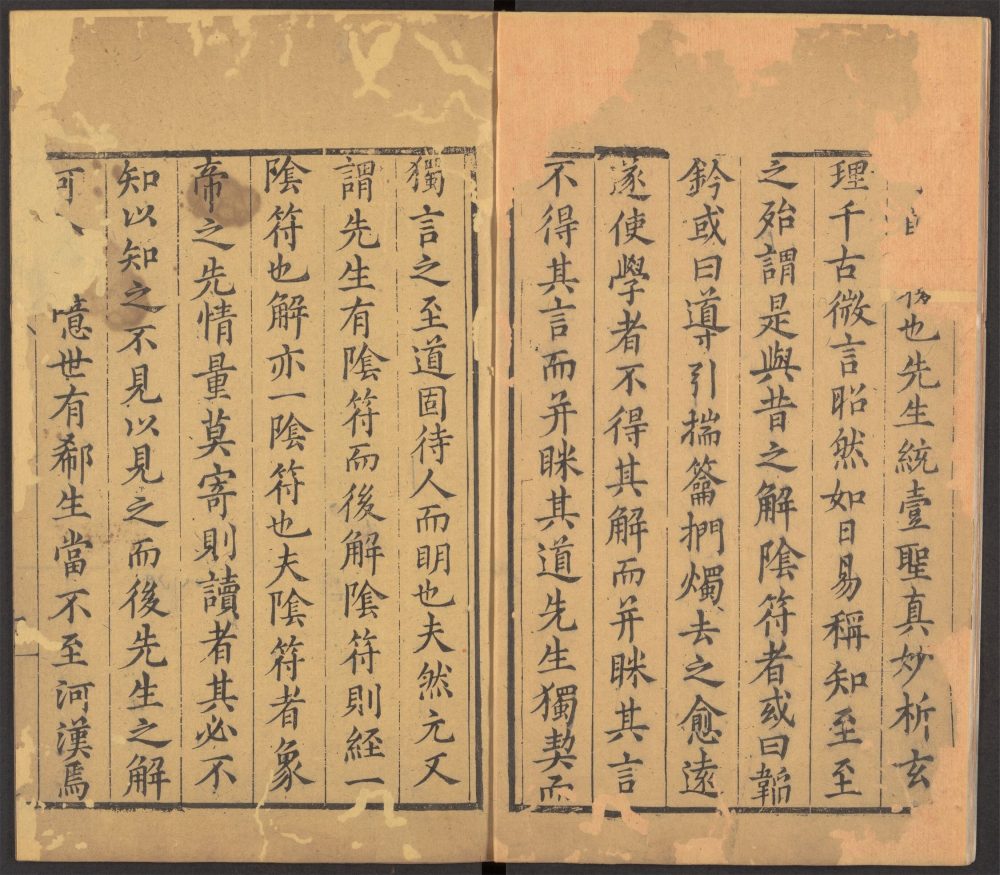 也先生統壹聖真妙析玄
理千古微言昭然如日易稱知至至
之殆謂是與昔之解陰符者或曰韜
鈐或曰導引揣籥捫燭去之愈遠
遂使學者不得其解而并眯其言
不得其言而并眯其道先生獨契而
獨言之至道固待人而明也夫然元又
謂先生有陰符而後解陰符則經一
陰符也解亦一陰符也夫陰符者象
帝之先情量莫寄則讀者其必不
知以知之不見以見之而後先生之解
可 噫世有郗生當不至河漢焉